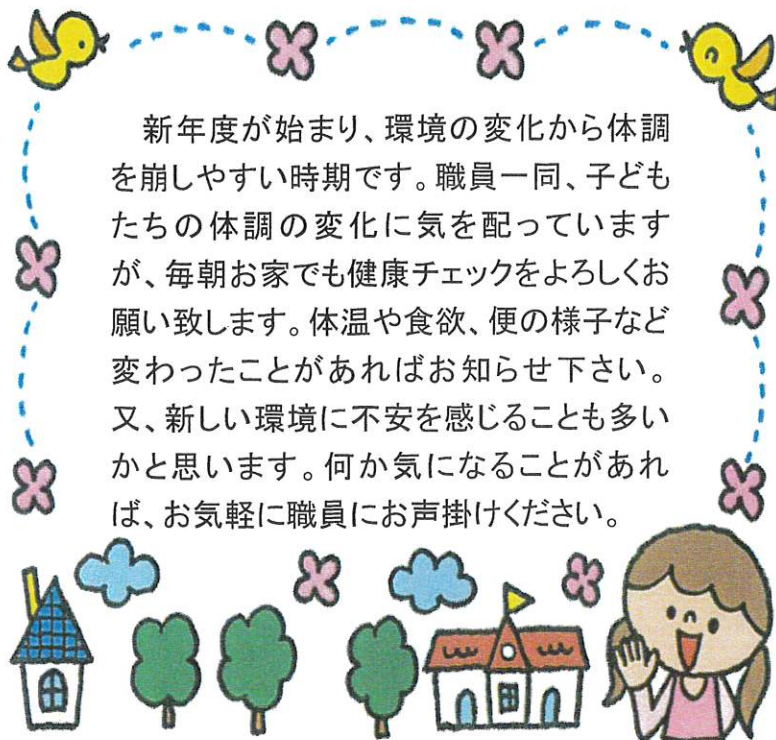 新年度が始まり、環境の変化から体調
を崩しやすい時期です。職員一同、子ども
たちの体調の変化に気を配っています
が、毎朝お家でも健康チェックをよろしくお
願い致します。体温や食欲、便の様子など
変わったことがあればお知らせ下さい。
又、新しい環境に不安を感じることも多い
かと思います。何か気になることがあれ
ば、お気軽に職員にお声掛けください。